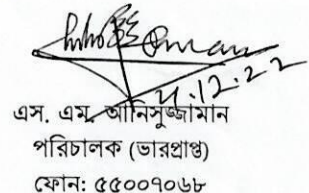 4.12.22
এস. এম. আনিসুজ্জামান
পরিচালক (ভারপ্রাপ্ত)
ফোন: ৫৫০০৭০৬৮